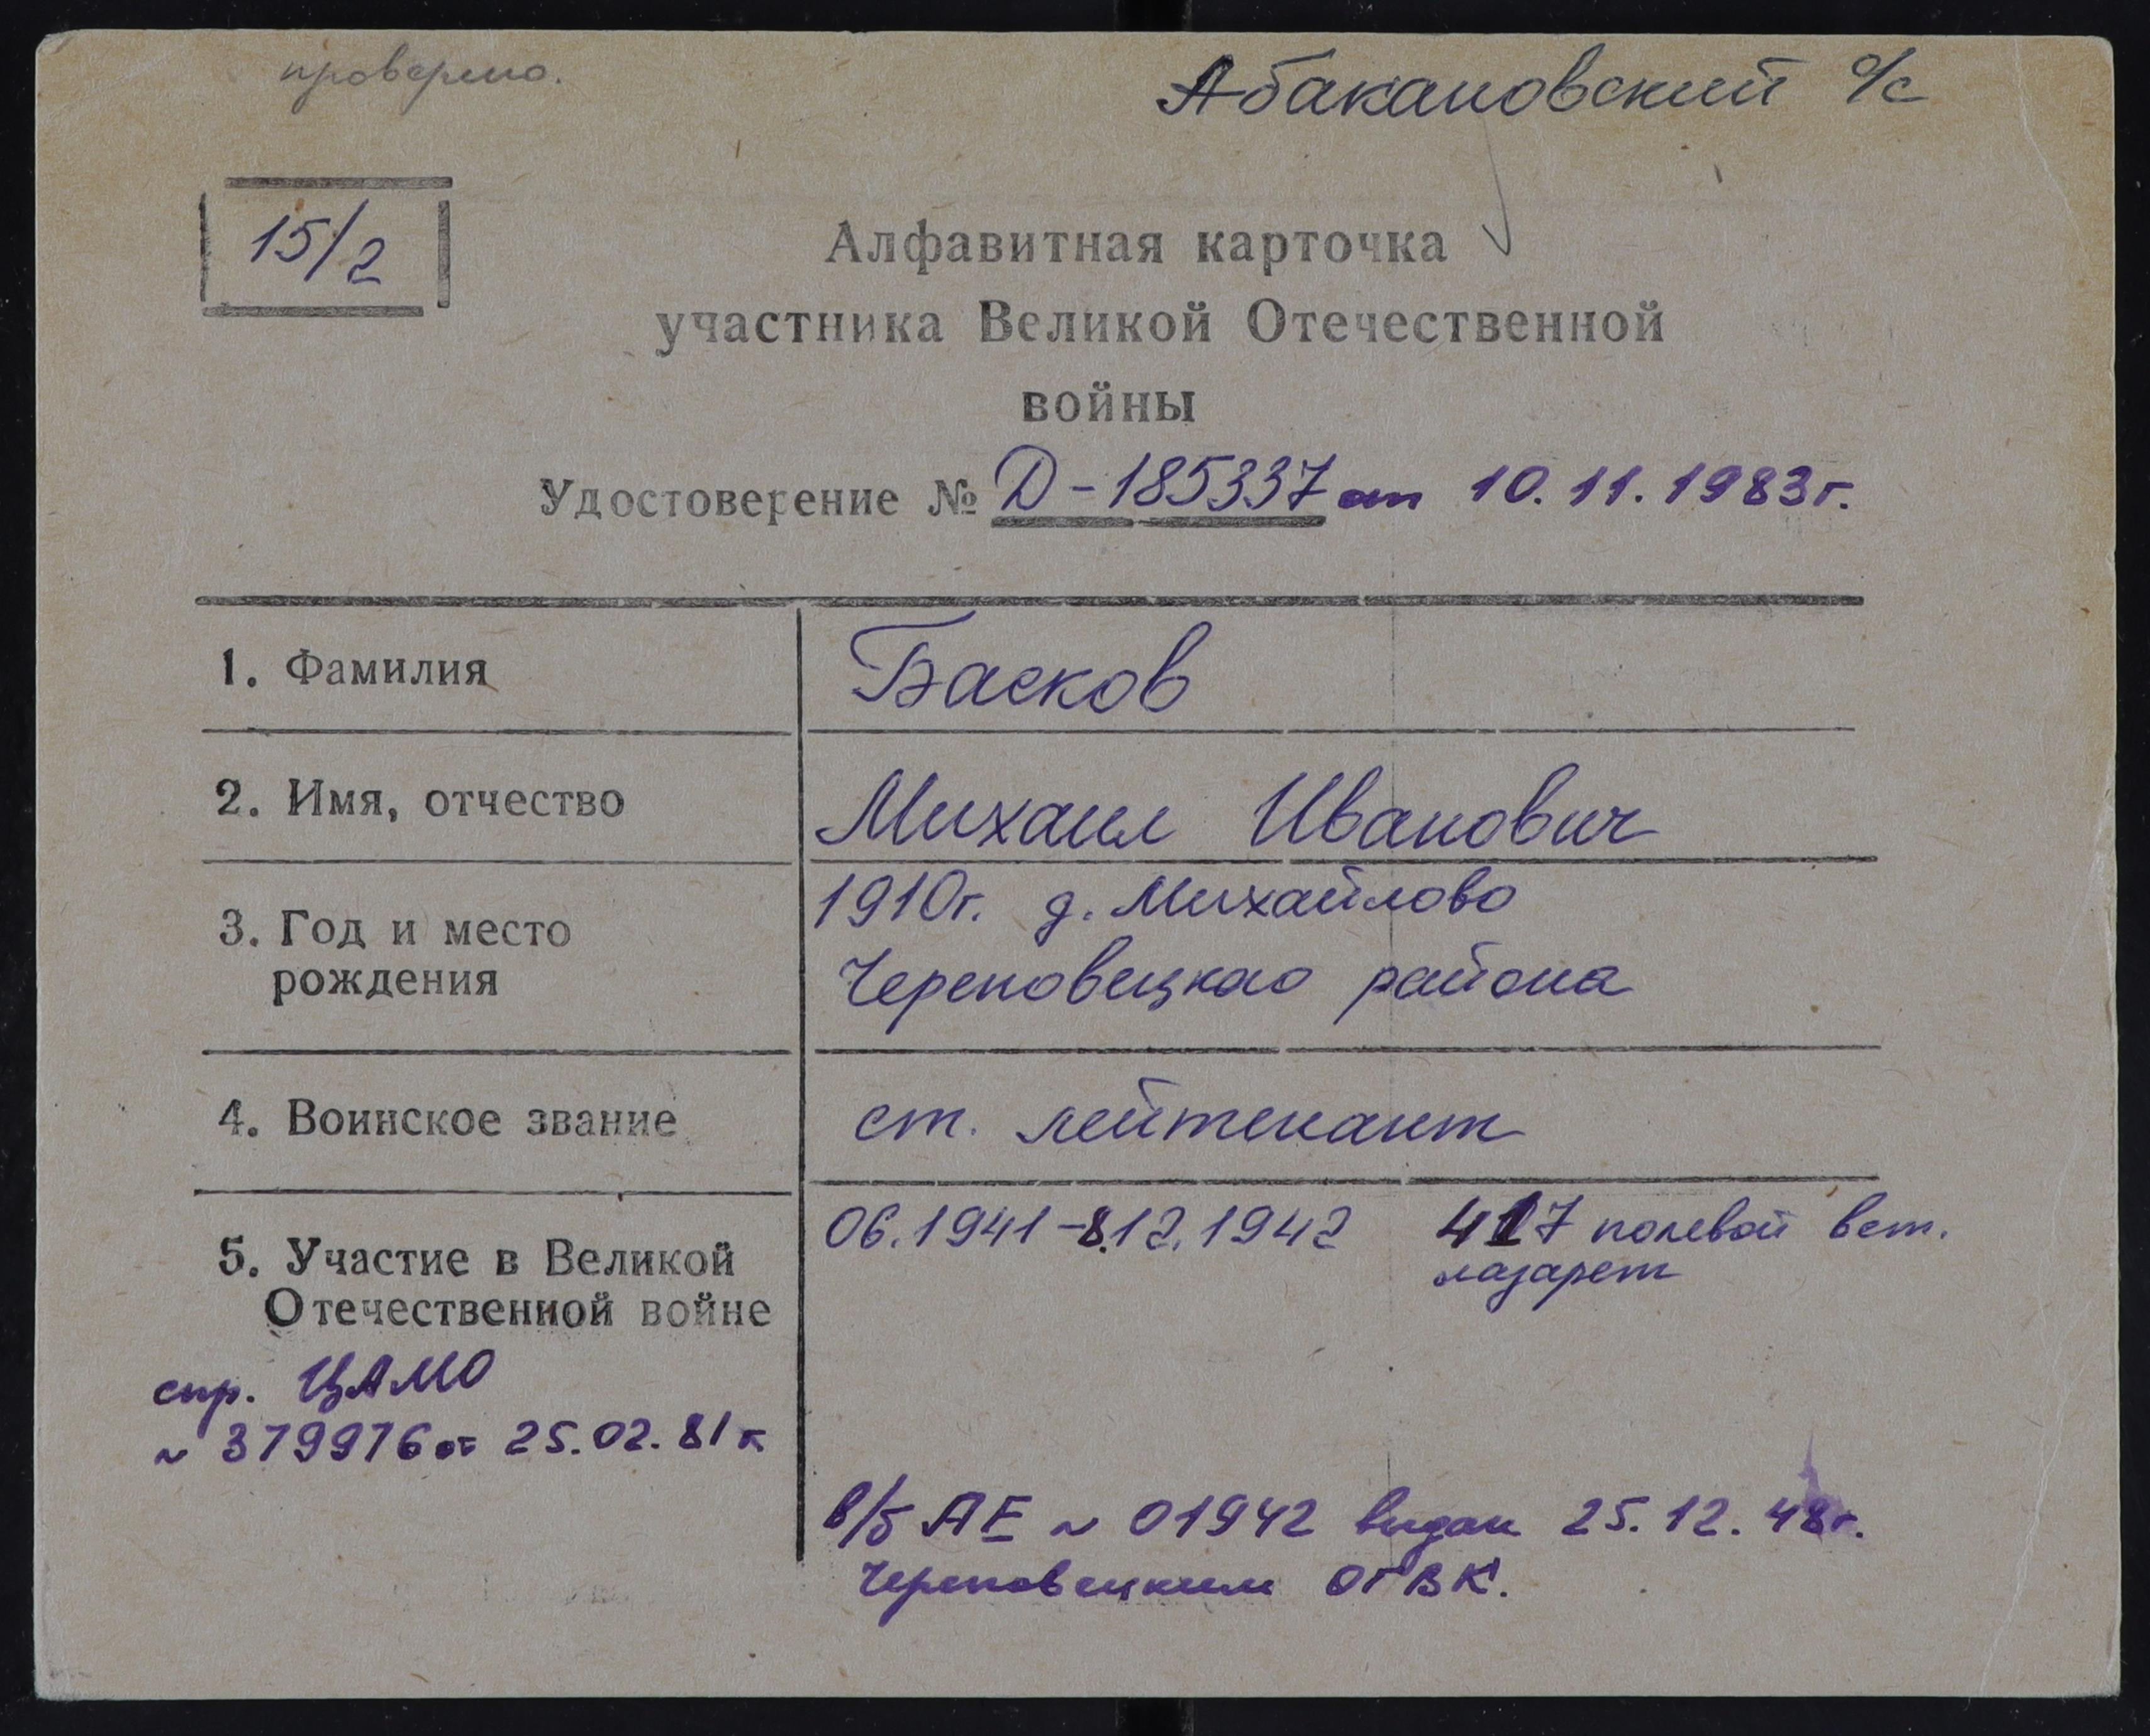 проверено.
Абакановский с/с
15/2
Алфавитная карточка
участника Великой Отечественной
войны
Удостоверение № Д-185337 от 10.11.1983г.
1. Фамилия
Басков
2. Имя, отчество
Михаил Иванович
3. Год и место
рождения
1910г. д. Михайлово
Череповецкого района
4. Воинское звание
ст. лейтенант
5. Участие в Великой
Отечественной войне
06.1941-8.12.1942 417 полевой вет.
лазарет
спр. ЦАМО
~ 379976 от 25.02.81г
в/б АЕ ~ 01942 выдан 25.12.48г.
Череповецким ОГВК.